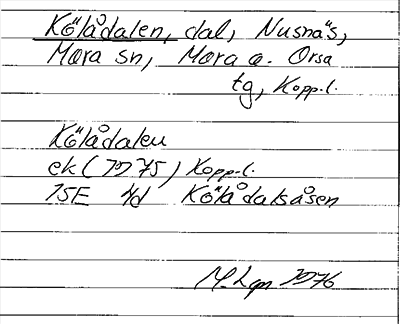 Kölådalen, dal, Nusnäs,
Mora sn, Mora o. Orsa
tg, Kopp.l.
Kölådalen
ek (1975) Kopp.l.
15E 4d Kölådalsåsen
M. Lgn 1976